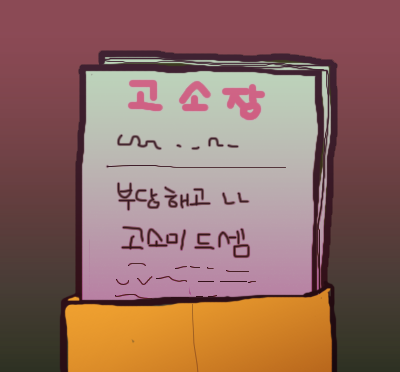 고소장
부당해고 ㄴㄴ
고소미 드셈